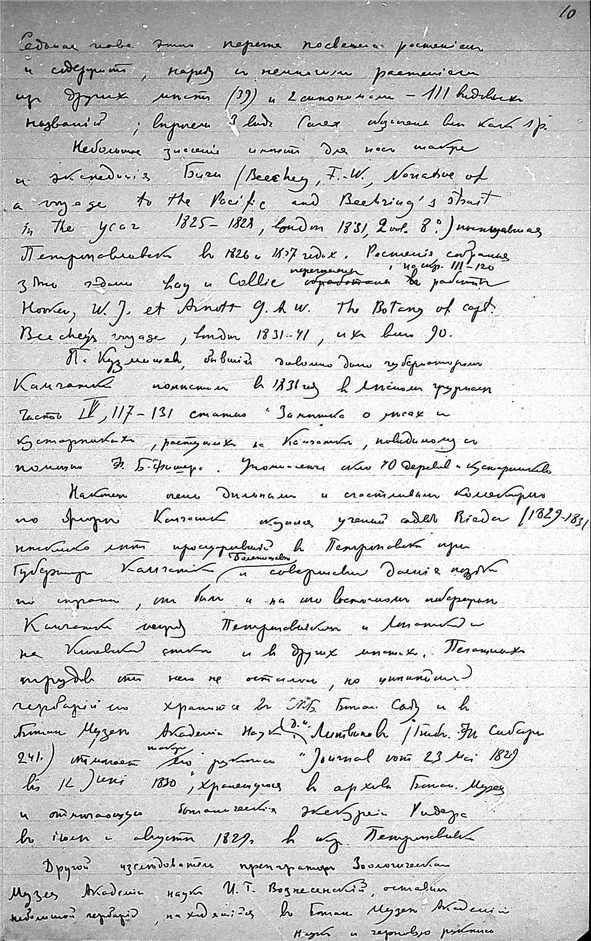 10
Седьмая глава этого перечня посвящена растениям
и содержит, наряду с немногими растениями
из других мест (39) и 2 синонимами – 111 видовых
названий; впрочем 3 вида Carex указаны им как sp.
Небольшое значение имеет для нас также
и экспедиция Бичи (Beechey, F.-W., Narrative of
a voyage to the Pacific and Beehring's strait
in the year 1825–1828, London 1831, 2 vol. 8°.) посетившая
Петропавловск в 1826 и 1827 годах. Растения, собранные
перечислены, на стр. 111–120
в работе
Lay и Collie
Hooker, W. J. et Arnott G. A. W. The Botany of capt.
Beechey's voyage, London 1831–41, их всего 90.
П. Кузмищев, бывший довольно долго
Камчатке поместил в 1836 году в Лесном журнале
часть IV, 117–131 статью "Записка о лесах и
кустарниках, растущих в Камчатке, повидимому с
помощью Ф. Б. Фишера. Упомянуто около 40 деревьев и кустарников
Наконец очень дельным и счастливым коллектором
по флоре Камчатки оказался ученый садовод Rieder (1829–1831
несколько лет прослуживший в Петропавловске при
Губернаторе Камчатки и совершивший далекие поездки
по стране, он был и на его восточном побережьи
Камчатки между Петропавловском и
на и в других местах. Печатных
трудов от него не осталось, но
гербарий его хранится в Ботан. Саду и в
Ботан. Музее Академии Наук. Д. И. Литвинов (Библ. Фл. Сибири
241.) отмечает также его рукопись "Journal vom 23 Mai 1829
bis 12 Juni 1830", хранящуюся в архиве Ботан. Музея
и отмечающую ботанические экскурсии Ридера
в июле и августе 1829 г. в окр. Петропавловска
Другой исследователь препаратор Зоологического
Музея Академии наук И. Г. Вознесенский, оставил
небольшой гербарий, находящийся в Ботан. Музее Академии
Наук и черновую рукопись